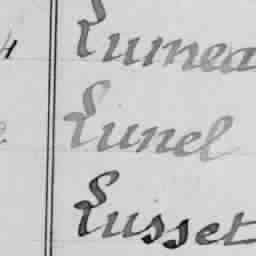 Lumea
Lunel
Lusset